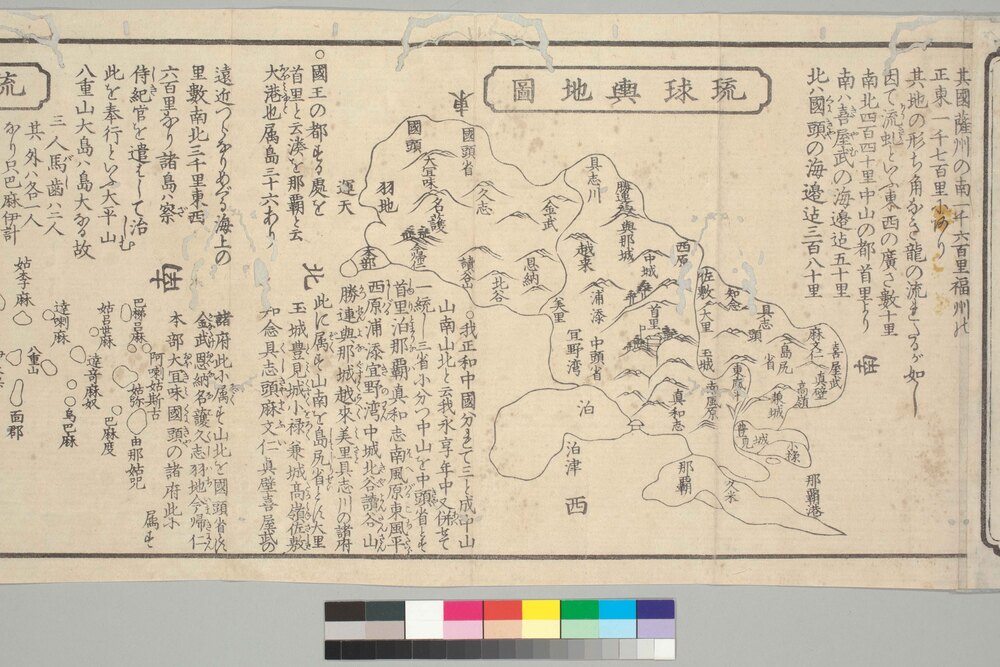 其國薩州の南一千六百里福州ノ
正東一千七百里にあり
其地の形ち角なき龍の流るゝが如し
因て流虬といふ東西の廣さ數十里
南北四百四十里中山の都首里より
南ハ喜屋武の海邊迄五十里
北ハ國頭の海邊迄三百八十里
琉球輿地圖
東
國頭
國頭省
大宜味
羽地
名護
久志
運天
今歸仁
本部
金武
恩納
讀谷山
北谷
具志川
勝連
與那城
越來
美里
中城
浦添
中頭省
宜野湾
西原
首里
真和志
佐敷
大里
知念
玉城
具志頭
島尻省
麻文仁
真壁
喜屋武
南
高嶺
兼城
東風平
南風原
豊見城
小禄
那覇港
那覇
久米
泊
泊津
西
北
○國王の都する處を
首里と云湊を那覇と云
大港也属島三十六あり
遠近つらなりめぐる海上の
里數南北三千里東西
六百里なり諸島ハ察
侍紀官を遣はして治
此を奉行といふ大平山
八重山大島ハ島大なる故
三人馬齒ハ二人
其外ハ各一人
なり只巴麻伊計
○我正和中國分れて三と成中山
山南山北と云我永享年中又併せて
一統し三省小分つ中山を中頭省とす
首里泊那覇真和志南風原東風平
西原浦添宜野湾中城北谷讀谷山
勝連與那城越來美里具志川の諸府
此に属す山南を島尻省とす大里
玉城豊見城小禄兼城高嶺佐敷
知念具志頭麻文仁真壁喜屋武の
諸府此小属す山北を國頭省とす
金武恩納名護久志羽地今帰仁
本部大宜味國頭の諸府此小
属す
姑李麻
達喇麻
八重山
姑呂世麻
達奇麻奴
烏巴麻
巴梯呂麻
阿喇姑斯古
姑弥
巴麻度
由那姑呢
面郡
流